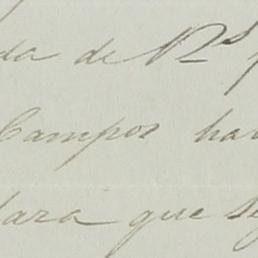 da de N.ˢ
Campos ha
para que se